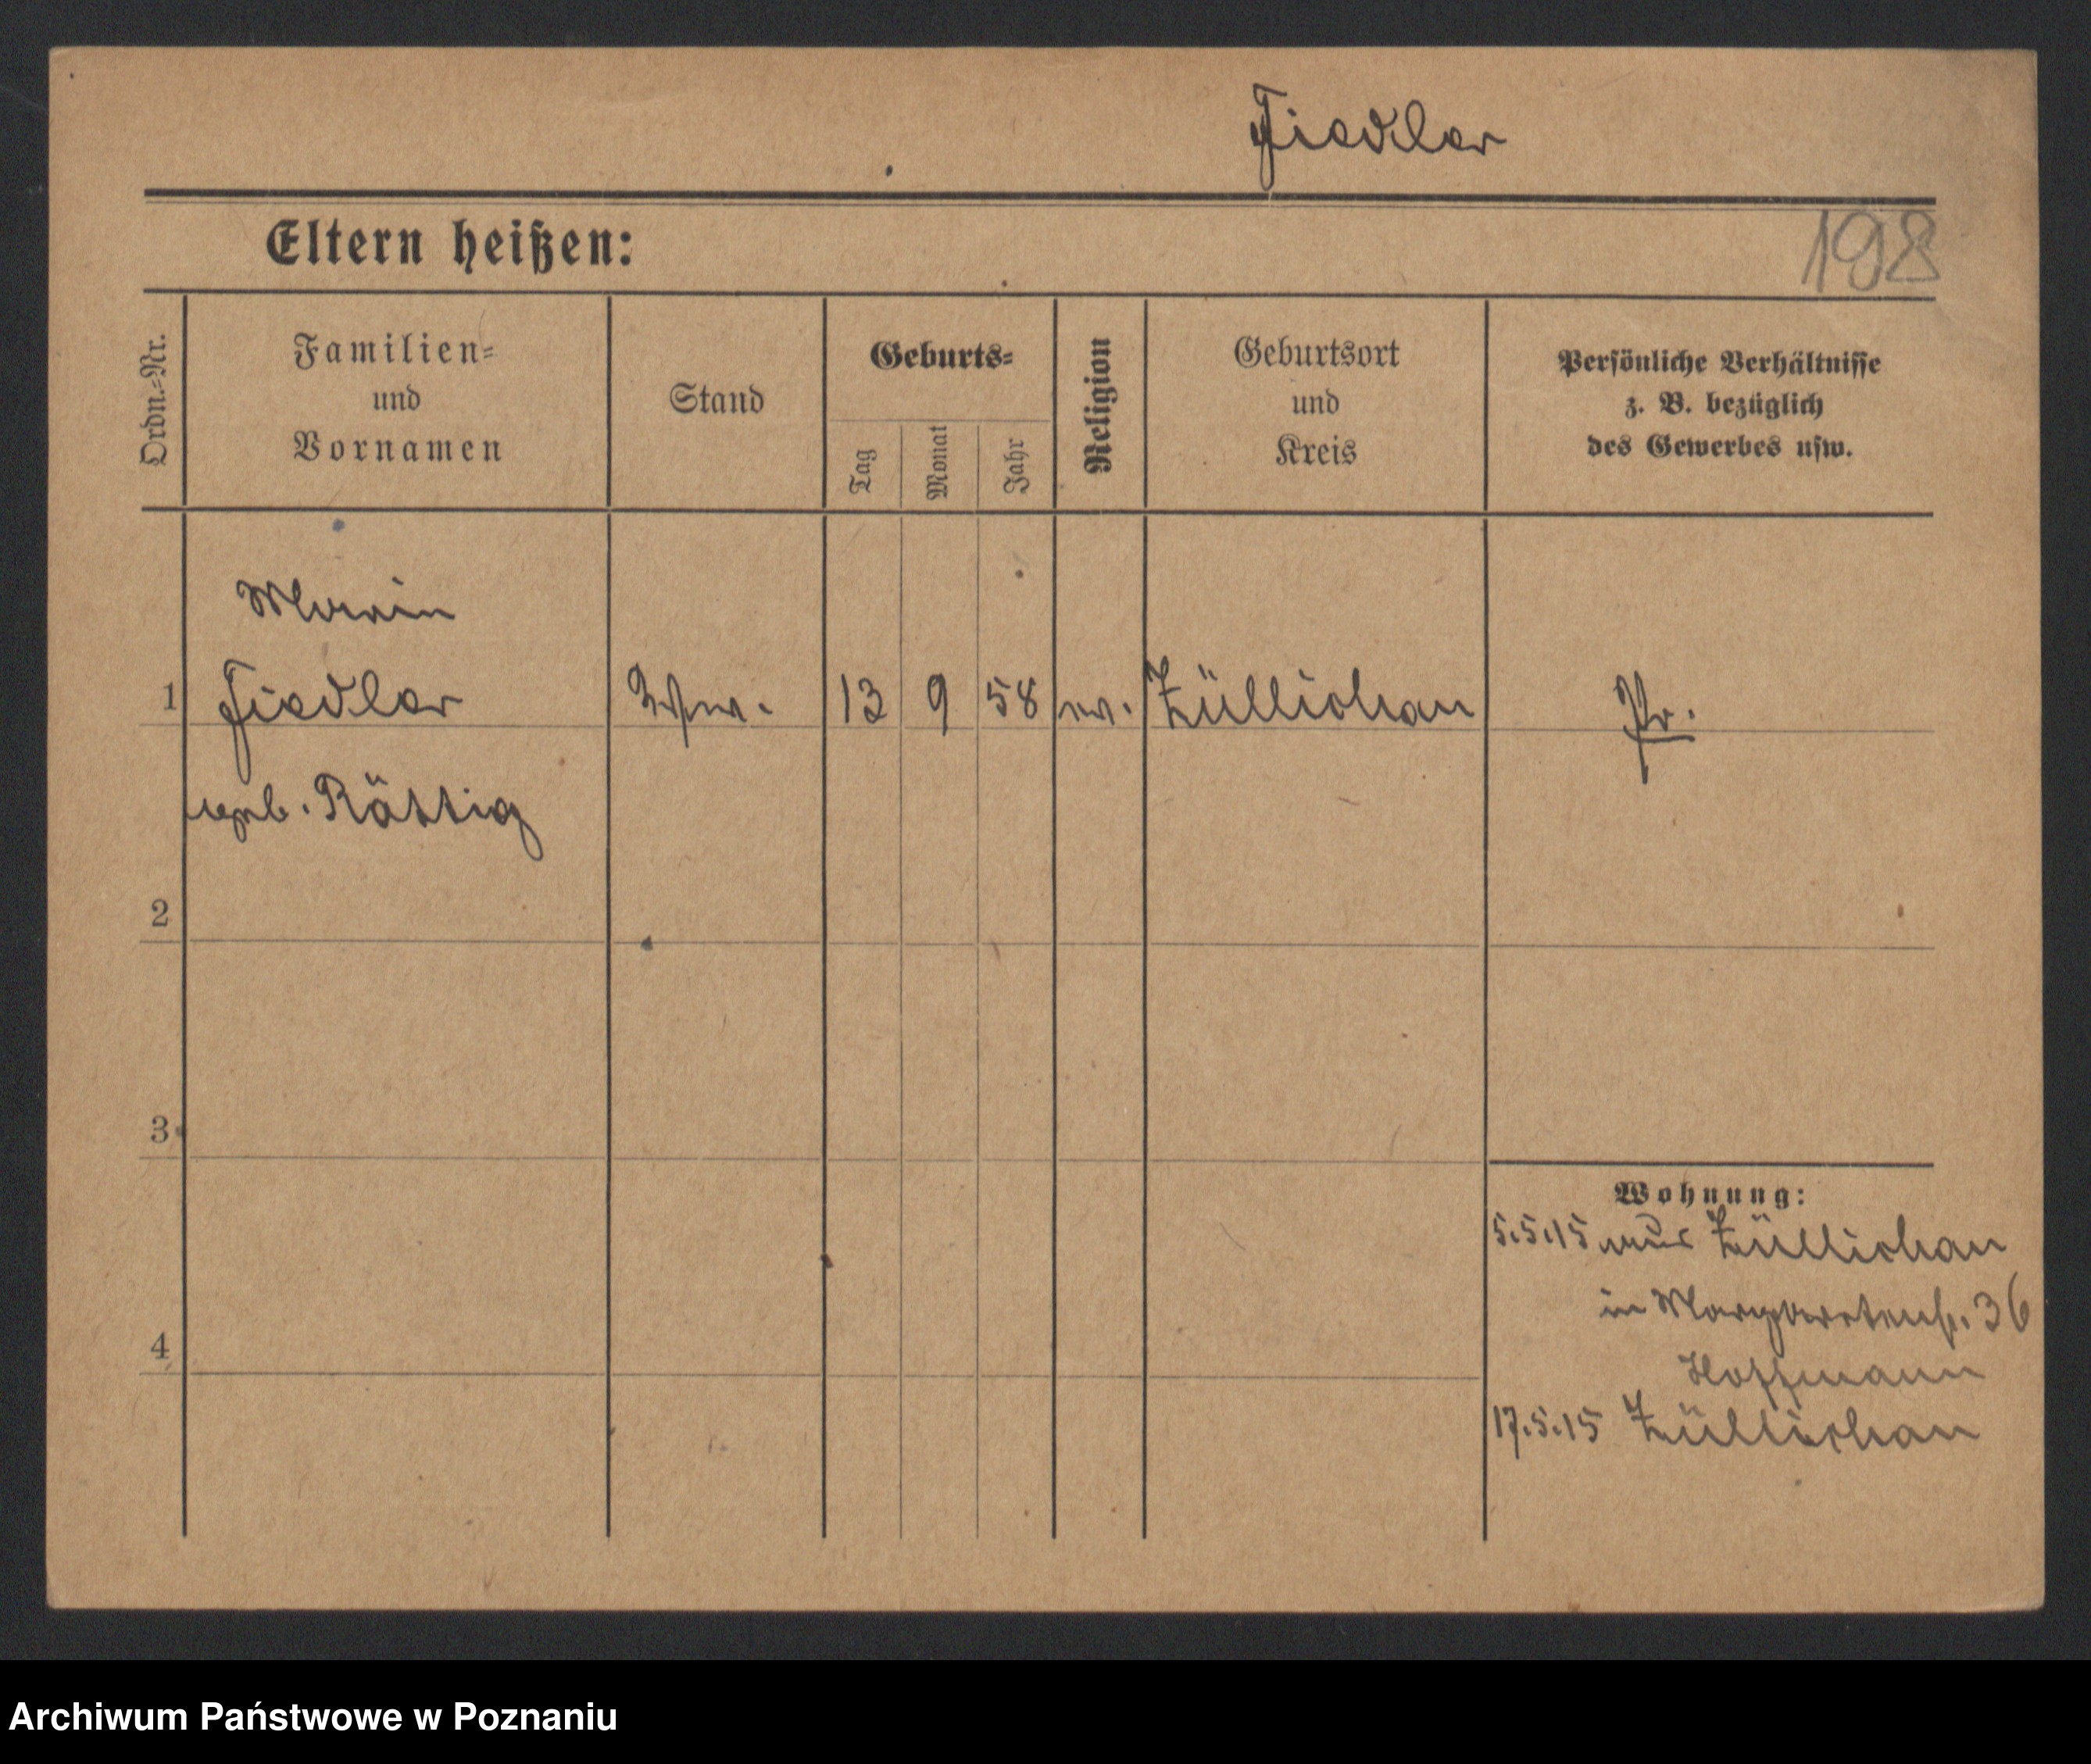 Fiedler
Eltern heißen:
198
Ordn.-Nr.
Familien-
und
Vornamen
Stand
Geburts-
Tag
Monat
Jahr
Religion
Geburtsort
und
Kreis
Persönliche Verhältnisse
z. B. bezüglich
des Gewerbes usw.
Maria
1 Fiedler 13 9 58 ev. Züllichau Pr.
geb. Rättig
2
3
4
Wohnung:
5.5.15 aus Züllichau
in Margaretenstr. 36
Hoffmann
17.5.15 Züllichau
Archiwum Państwowe w Poznaniu